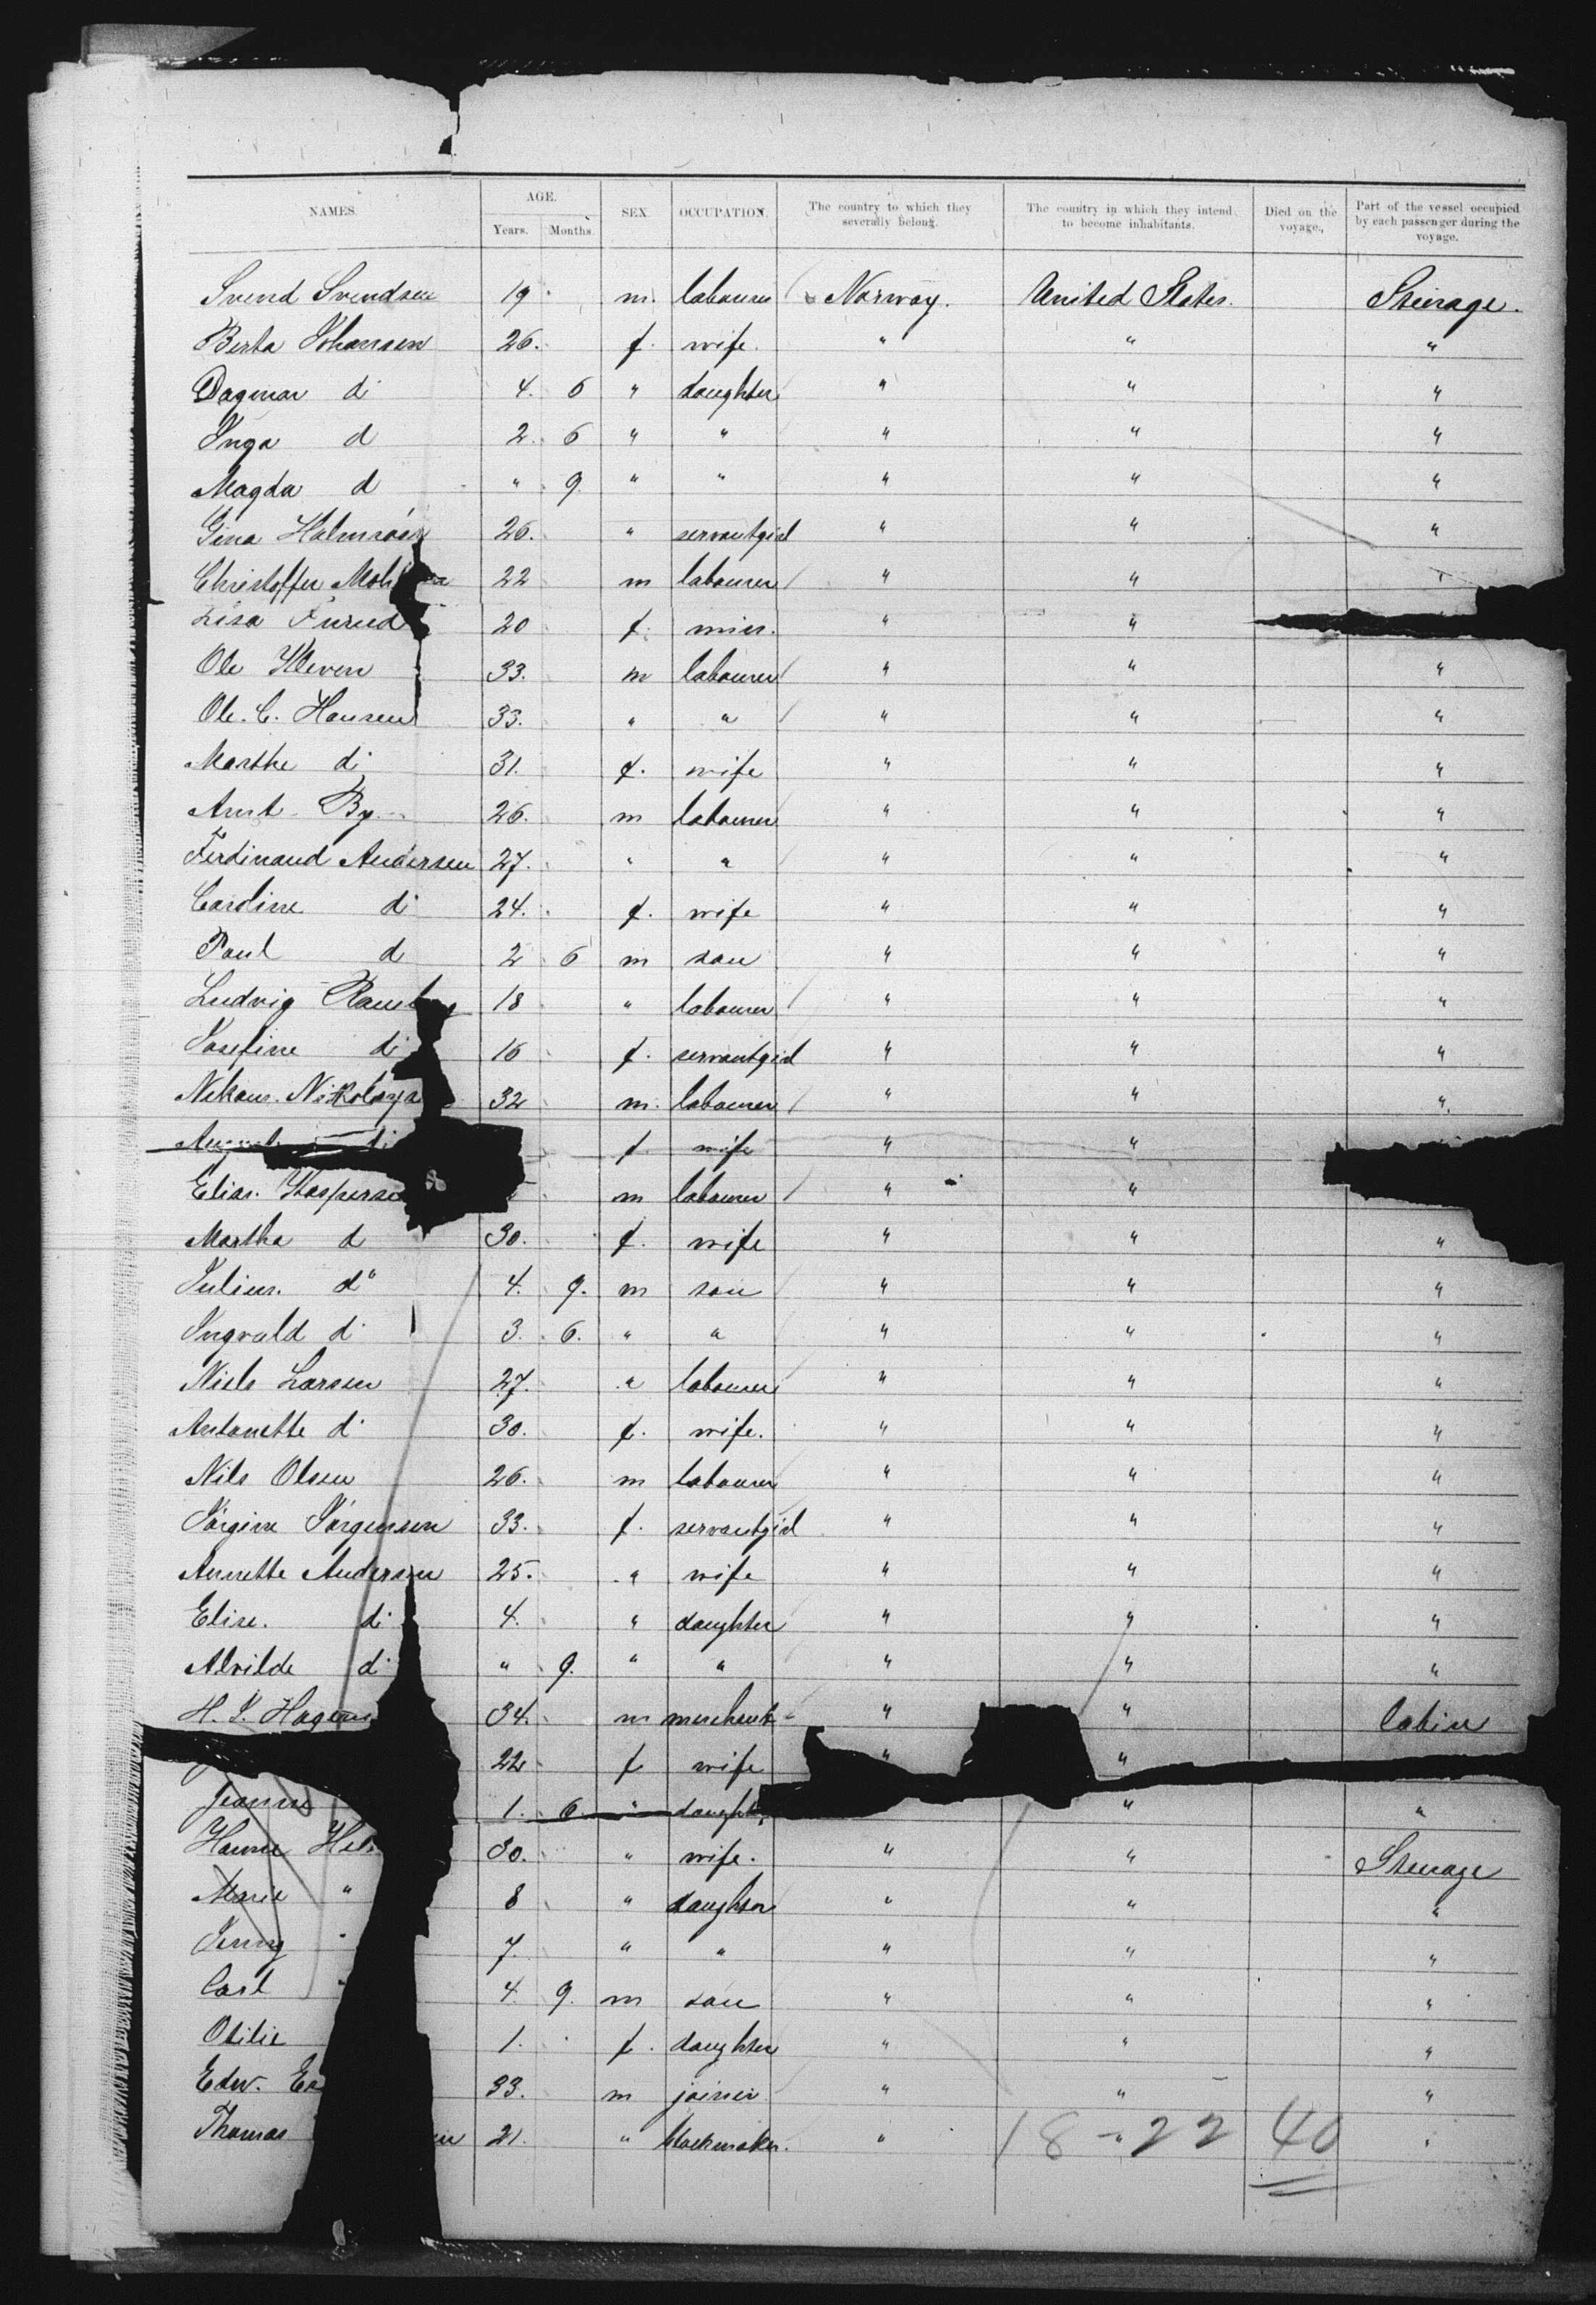 NAMES. AGE. SEX. OCCUPATION. The country to which they severally belong. The country in which they intend to become inhabitants. Died on the voyage. Part of the vessel occupied by each passenger during the voyage.
Years. Months.
Svend Svendsen 19 m. labourer Norway. United States. Steerage.
Berta Johansen 26. f. wife. " " "
Dagmar do 4. 6 " daughter " " "
Inga do 2. 6 " " " " "
Magda do " 9. " " " " "
Gina 26. " servantgirl " " "
Christoffer 22 m labourer " " "
Lisa 20 f. miss. " "
Ole Kleven 33. m labourer " " "
Ole. C. Hansen 33. " " " " "
Marthe do 31. f. wife " " "
By 26. m labourer " " "
Ferdinand Andersen 27. " " " " "
Caroline do 24. f. wife " " "
Paul do 2 6 m son " " "
Ludvig 18 " labourer " " "
Josefine do 16 f. servantgirl " " "
32 m. labourer " " "
do f. wife " "
Elias. m labourer " "
Martha do 30. f. wife " " "
Julius. do 4. 9. m son " " "
Ingvald do 3. 6. " " " " "
Niels Larsen 27. " labourer " " "
Antonette do 30. f. wife. " " "
Nils Olsen 26. m labourer " " "
Jörgine Jörgensen 33. f. servantgirl " " "
Annette Andersen 25. " wife " " "
Elise. do 4. " daughter " " "
Alvilde do " 9. " " " " "
H. J. 34. m merchant " " Cabin
22 f wife " "
1. 6 " " "
Hanne 30. " wife. " " Steerage
Marie " 8 " daughter " " "
Jenny " 7. " " " " "
Carl " 4. 9. m son " " "
Otilie 1. f. daughter " " "
Edw. 33. m joiner " " "
Thomas 21. " blockmaker. " " "
18 - 22 40